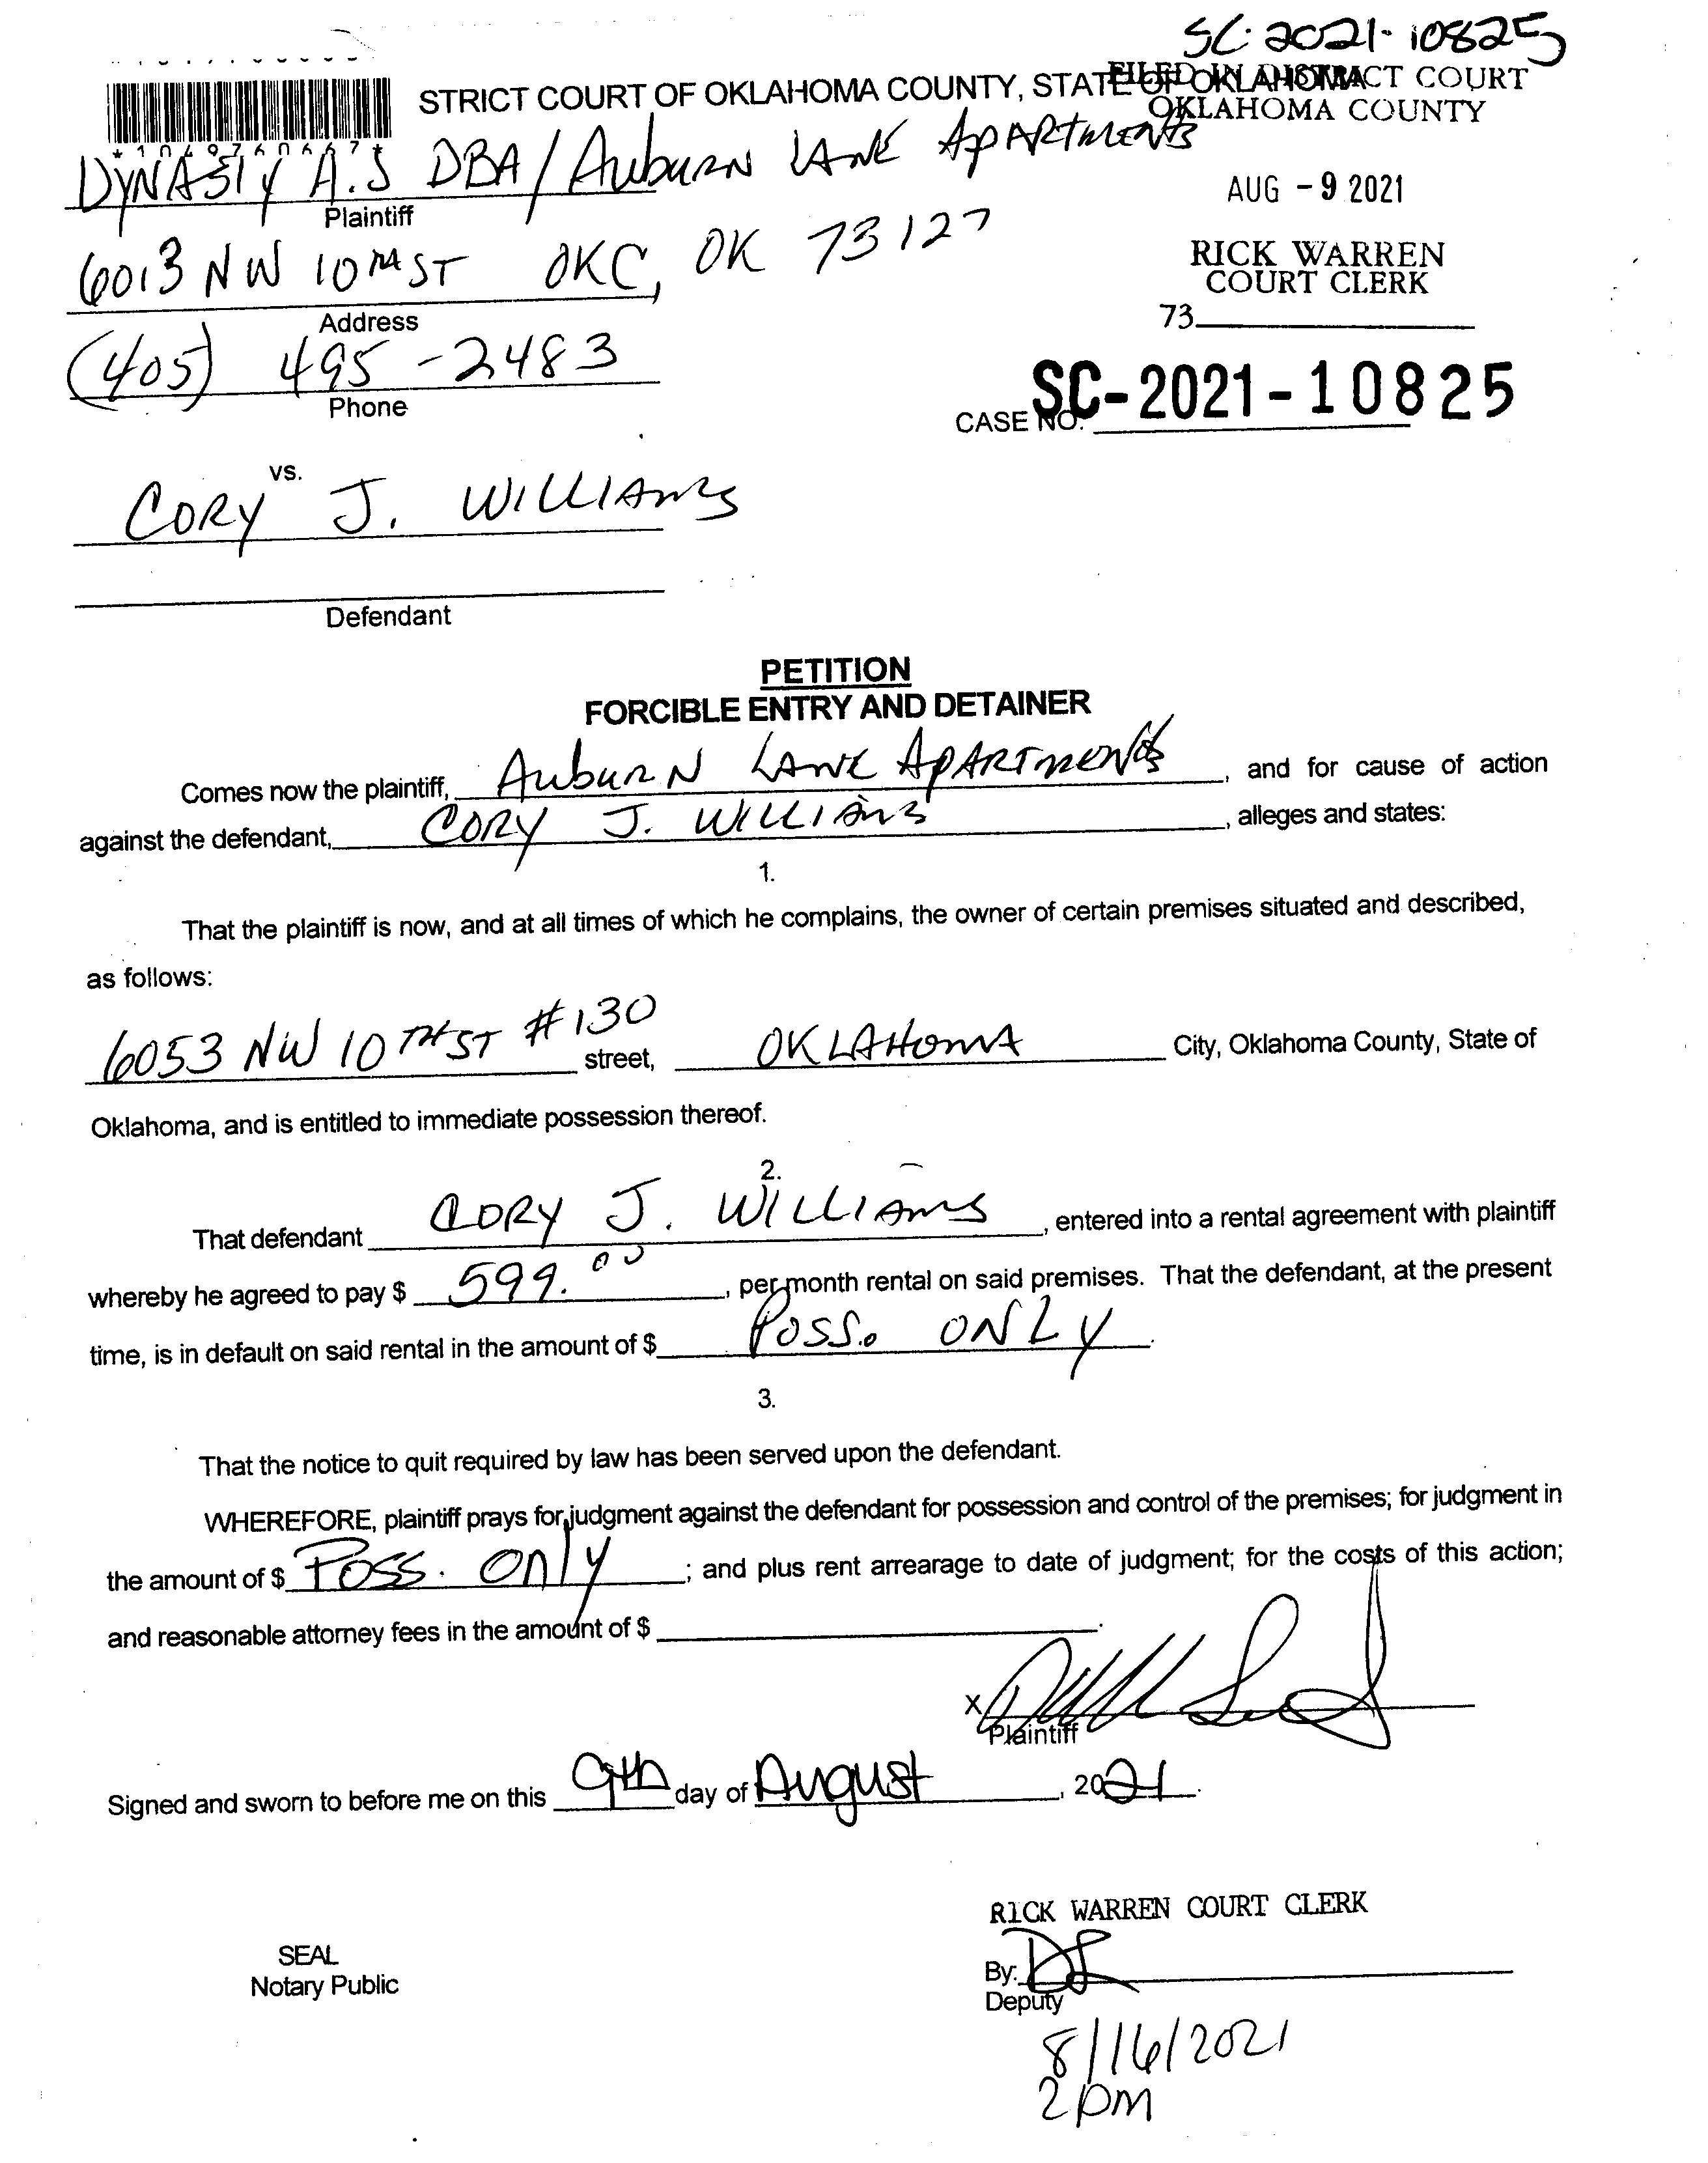 SC-2021-10825
STRICT COURT OF OKLAHOMA COUNTY, STATE OF OKLAHOMA
FILED IN DISTRICT COURT
OKLAHOMA COUNTY
*1049760667*
DYNASTY A.S DBA/Auburn LANE APARTMENTS
Plaintiff
AUG -9 2021
6013 NW 10TH ST OKC, OK 73127
Address
RICK WARREN
COURT CLERK
73
(405) 495-2483
Phone
CASE NO. SC-2021-10825
vs.
CORY J. WILLIAMS
Defendant
PETITION
FORCIBLE ENTRY AND DETAINER
Comes now the plaintiff, Auburn LANE APARTMENTS, and for cause of action
against the defendant, CORY J. WILLIAMS, alleges and states:
1.
That the plaintiff is now, and at all times of which he complains, the owner of certain premises situated and described,
as follows:
6053 NW 10TH ST #130 street, OKLAHOMA City, Oklahoma County, State of
Oklahoma, and is entitled to immediate possession thereof.
2.
That defendant CORY J. WILLIAMS, entered into a rental agreement with plaintiff
whereby he agreed to pay $ 599.00, per month rental on said premises. That the defendant, at the present
time, is in default on said rental in the amount of $ POSS. ONLY.
3.
That the notice to quit required by law has been served upon the defendant.
WHEREFORE, plaintiff prays for judgment against the defendant for possession and control of the premises; for judgment in
the amount of $ Poss. Only; and plus rent arrearage to date of judgment; for the costs of this action;
and reasonable attorney fees in the amount of $
X
Plaintiff
Signed and sworn to before me on this 9th day of August, 2021.
RICK WARREN COURT CLERK
SEAL
Notary Public
By:
Deputy
8/16/2021
2pm